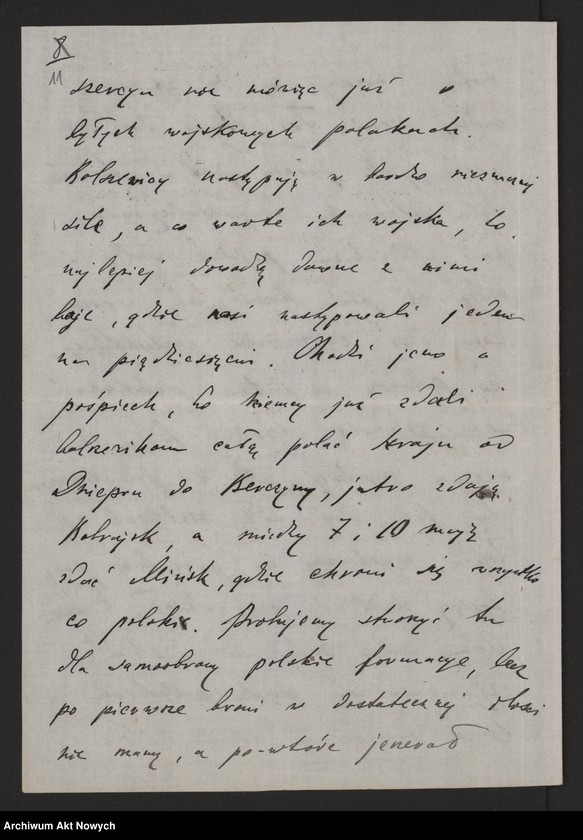 8
11
szerzyn nie mówiąc już o
byłych wojskowych polakach.
Bolszewicy następują w bardzo nieznacznej
sile, a co warte ich wojska, to
najlepiej dowodzą dawne z nimi
boje, gdzie nasi następowali jeden
na pięćdziesięciu. Chodzi jeno o
pośpiech, bo niemcy już zdali
bolszewikom całą połać kraju od
Dniepru do Berezyny, jutro zdają
Bobrujsk, a między 7 i 10 mają
zdać Mińsk, gdzie chroni się wszystko
co polskie. Próbujemy stworzyć tu
dla samoobrony polskie formacye, lecz
po pierwsze broni w dostatecznej ilości
nie mamy, a po-wtóre jenerał
Archiwum Akt Nowych